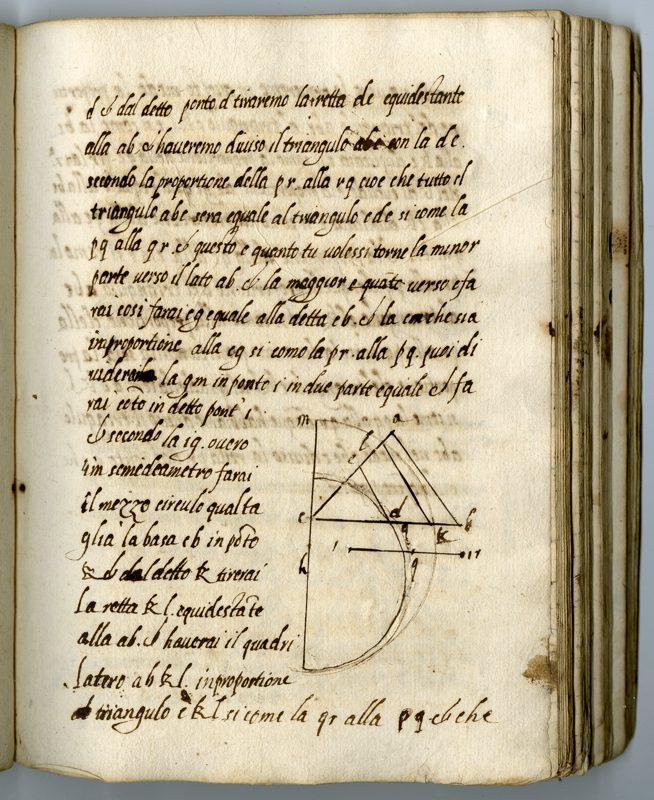 d & dal detto ponto d tiraremo la retta de equidestante
alla ab. & haveremo diviso il triangulo abc con la de.
secondo la proportione della pr. alla rq cioe che tutto el
triangulo abc sera equale al triangulo cde si come la
pq alla qr. & questo e quanto tu volessi torne la minor
parte verso il lato ab. & la maggior e quāto verso c fa
rai cosi farai cg equale alla detta cb. & la cm che sia
inproportione alla cg si como la pr. alla pq. puoi di
viderai la gm in ponto i in due parte equale & fa
rai cēto in detto pont' i
& secondo la ig. overo
im semedeametro farai
il mezzo circulo qual ta
glia la basa cb in pōto
k & dal detto k tirerai
la retta kl. equidestāte
alla ab. & haverai il quadri
latero abkl. inproportione
al triangulo ckl si come la qr alla pq & che
m
a
l
e
c
d
b
k
q
r
h